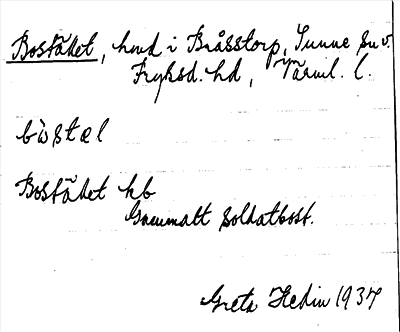 Bostället, hmd i Bråsstorp, Sunne sn v.
Fryksd. hd, Värml. l.
bὼstæl
Bostället hb
Gammalt soldatbost.
Greta Hedin 1937